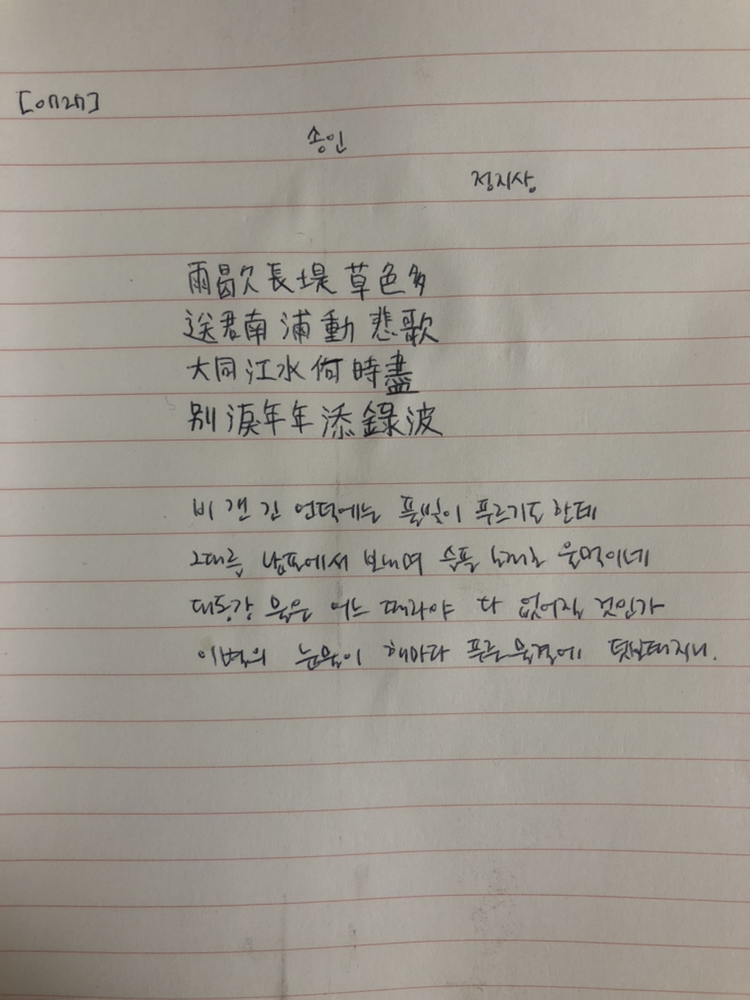 [여래]
송인
정지상
雨歇欠長堤草色多
送君南浦動悲歌
大同江水何時盡
別淚年年添錄波
비 갠 긴 언덕에는 풀빛이 푸르기도 한데
그대를 남포에서 보내며 슬픈 노래로 울먹이네
대동강 물은 어느 때라야 다 없어질 것인가
이별의 눈물이 해마다 푸른 물결에 덧보태지니.